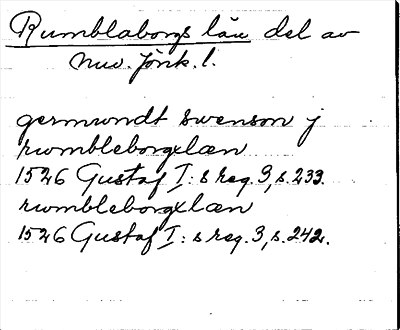 Rumblaborgs län del av
nuv. Jönk. l.
germundt swenson j
rwmbleborgxlæn
1526 Gustaf I:s reg. 3, s. 233.
rwmbleborgxlæn
1526 Gustaf I:s reg. 3, s. 242.